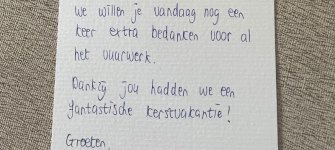 we willen je vandaag nog een
keer extra bedanken voor al
het vuurwerk.
Dankzij jou hadden we een
fantastische kerstvakantie!
Groeten